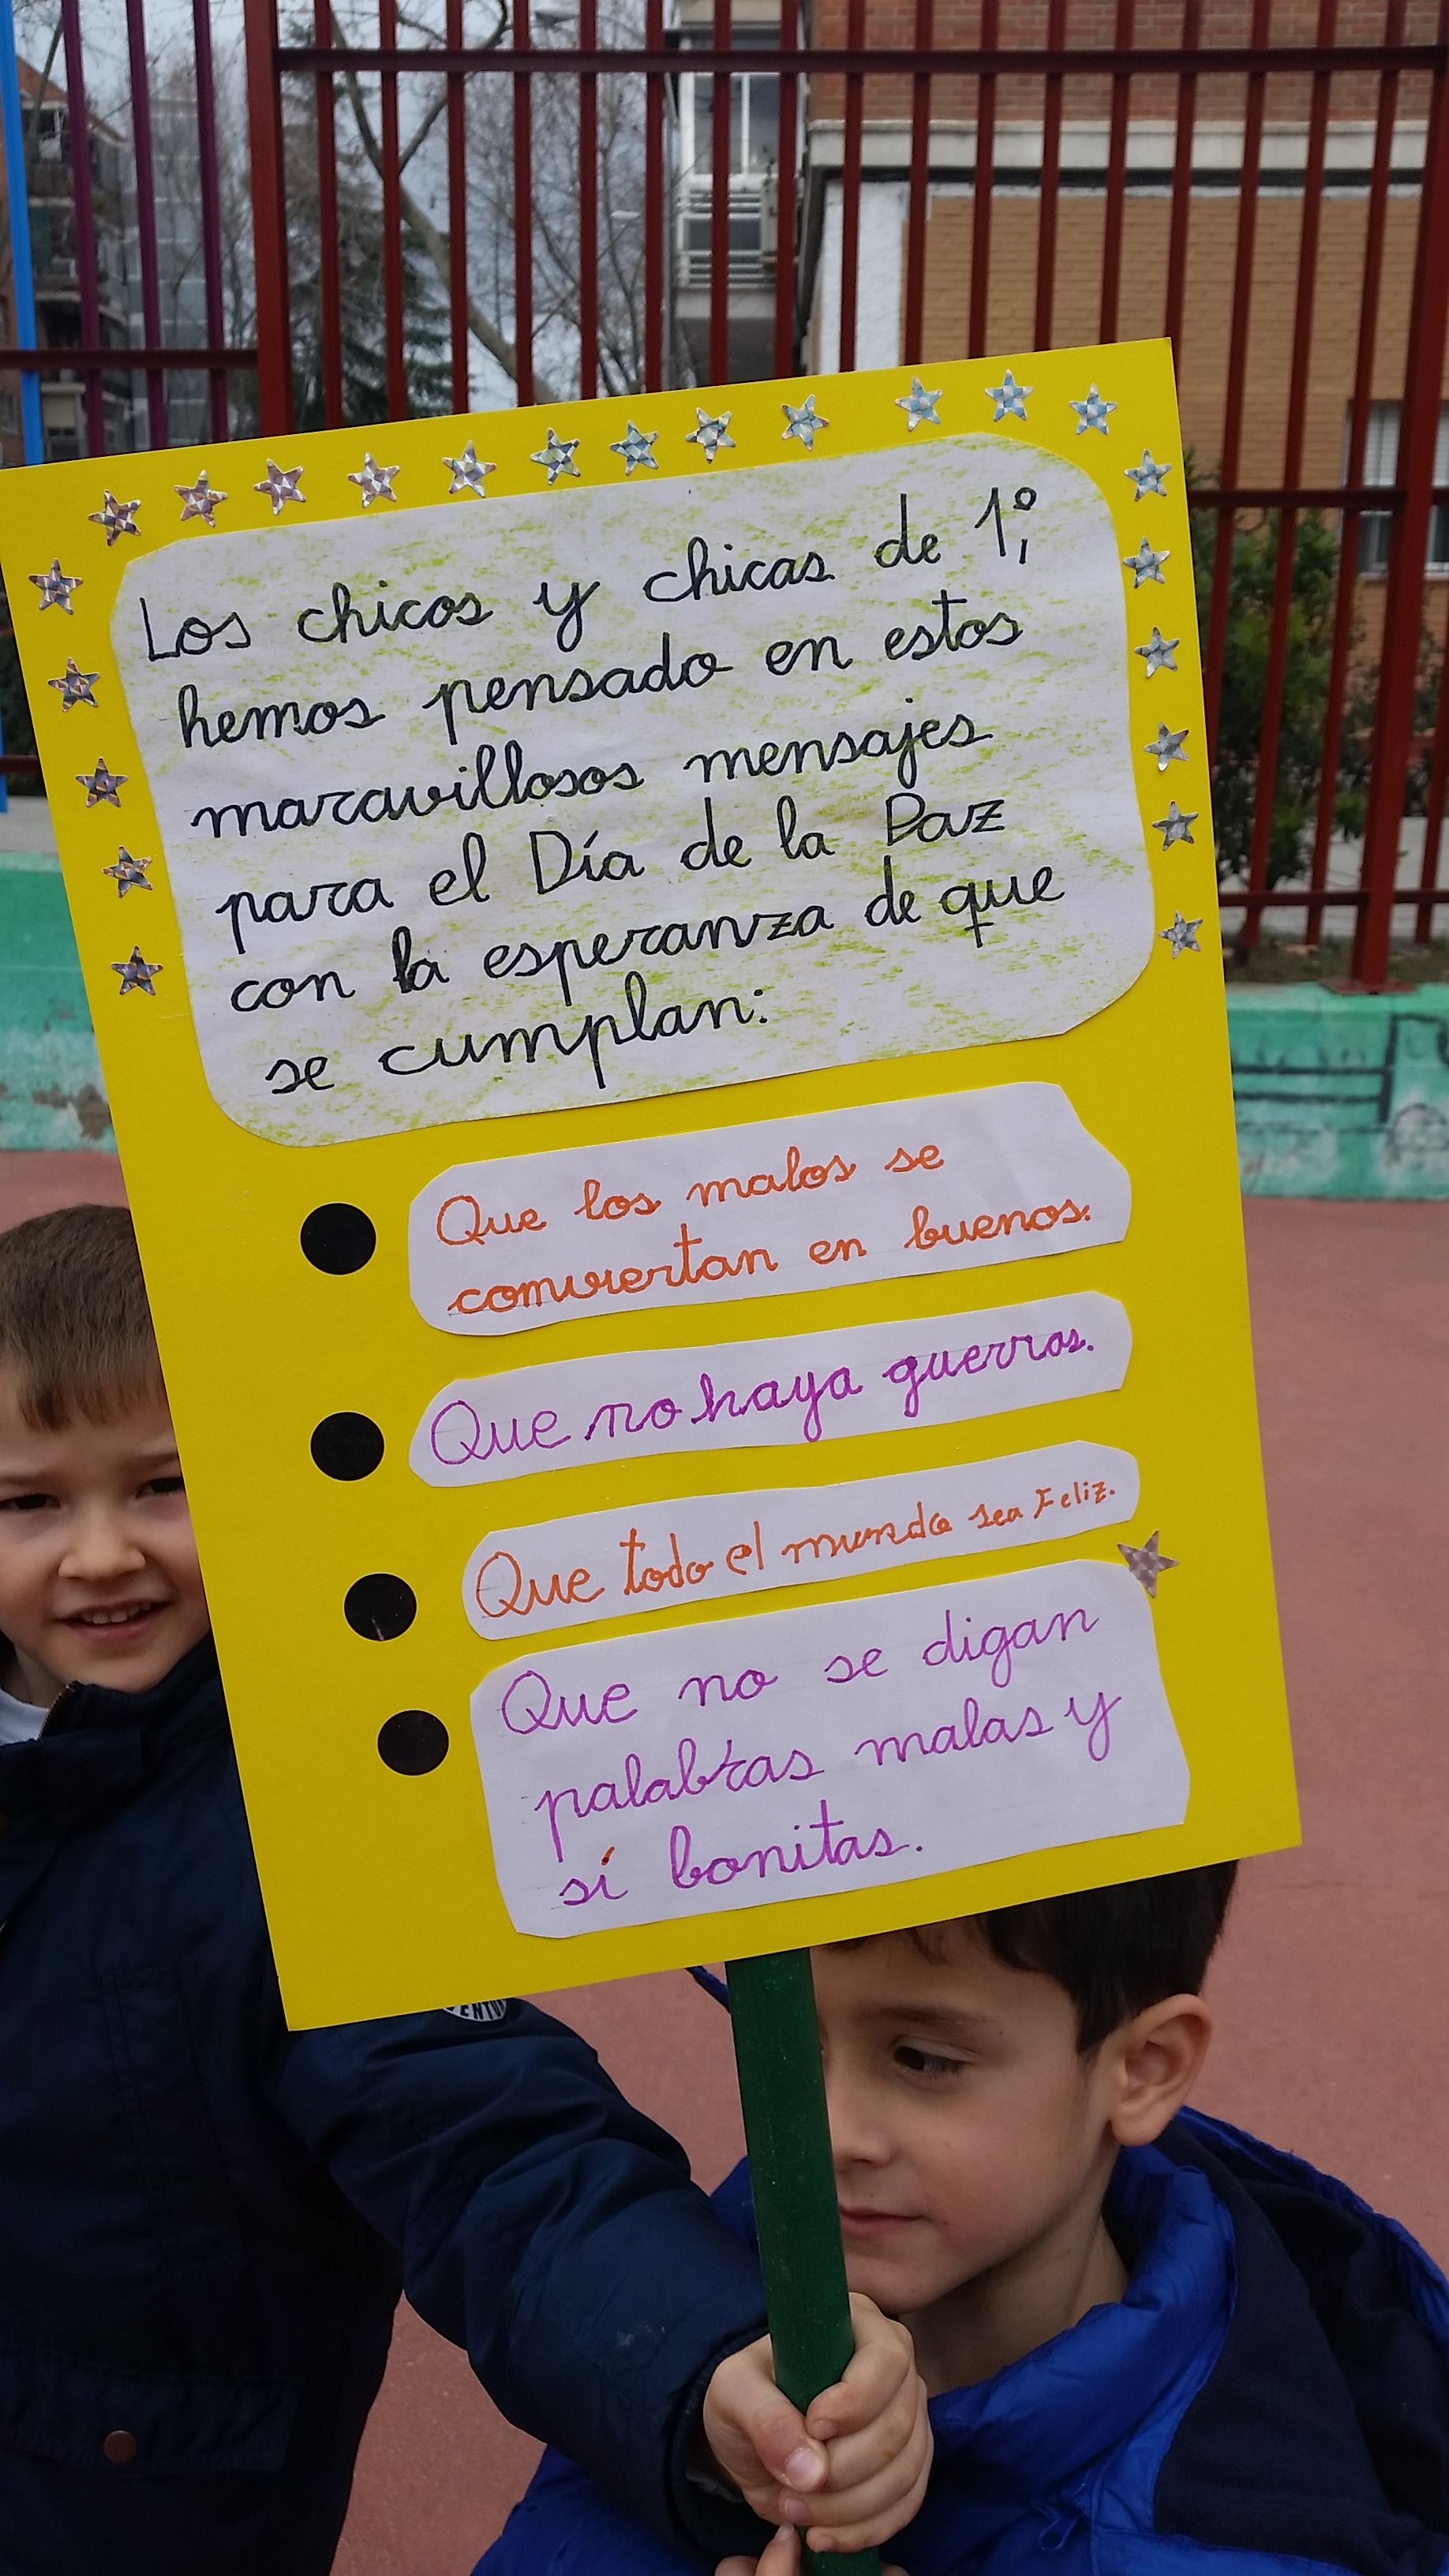 Los chicos y chicas de 1º,
hemos pensado en estos
maravillosos mensajes
para el Día de la Paz
con la esperanza de que
se cumplan:
Que los malos se
conviertan en buenos.
Que no haya guerras.
Que todo el mundo sea Feliz.
Que no se digan
palabras malas y
sí bonitas.